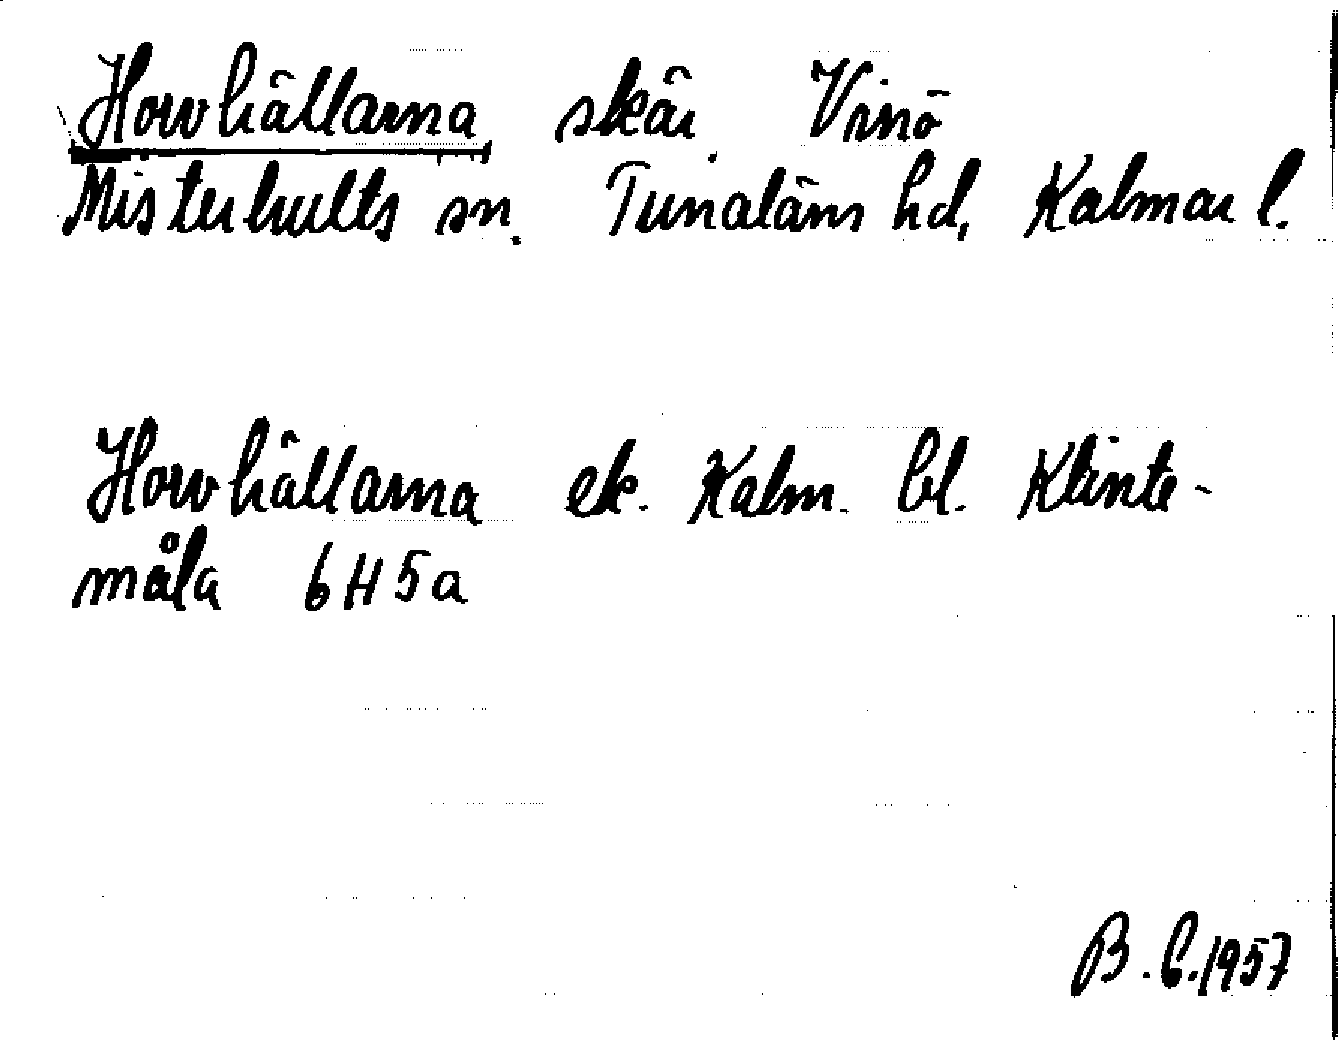 Horvhällarna skär Vinö
Misterhults sn. Tunaläns hd, Kalmar l.
Horvhällarna ek. Kalm. bl. Klinte-
måla 6H5a
B. G. 1957